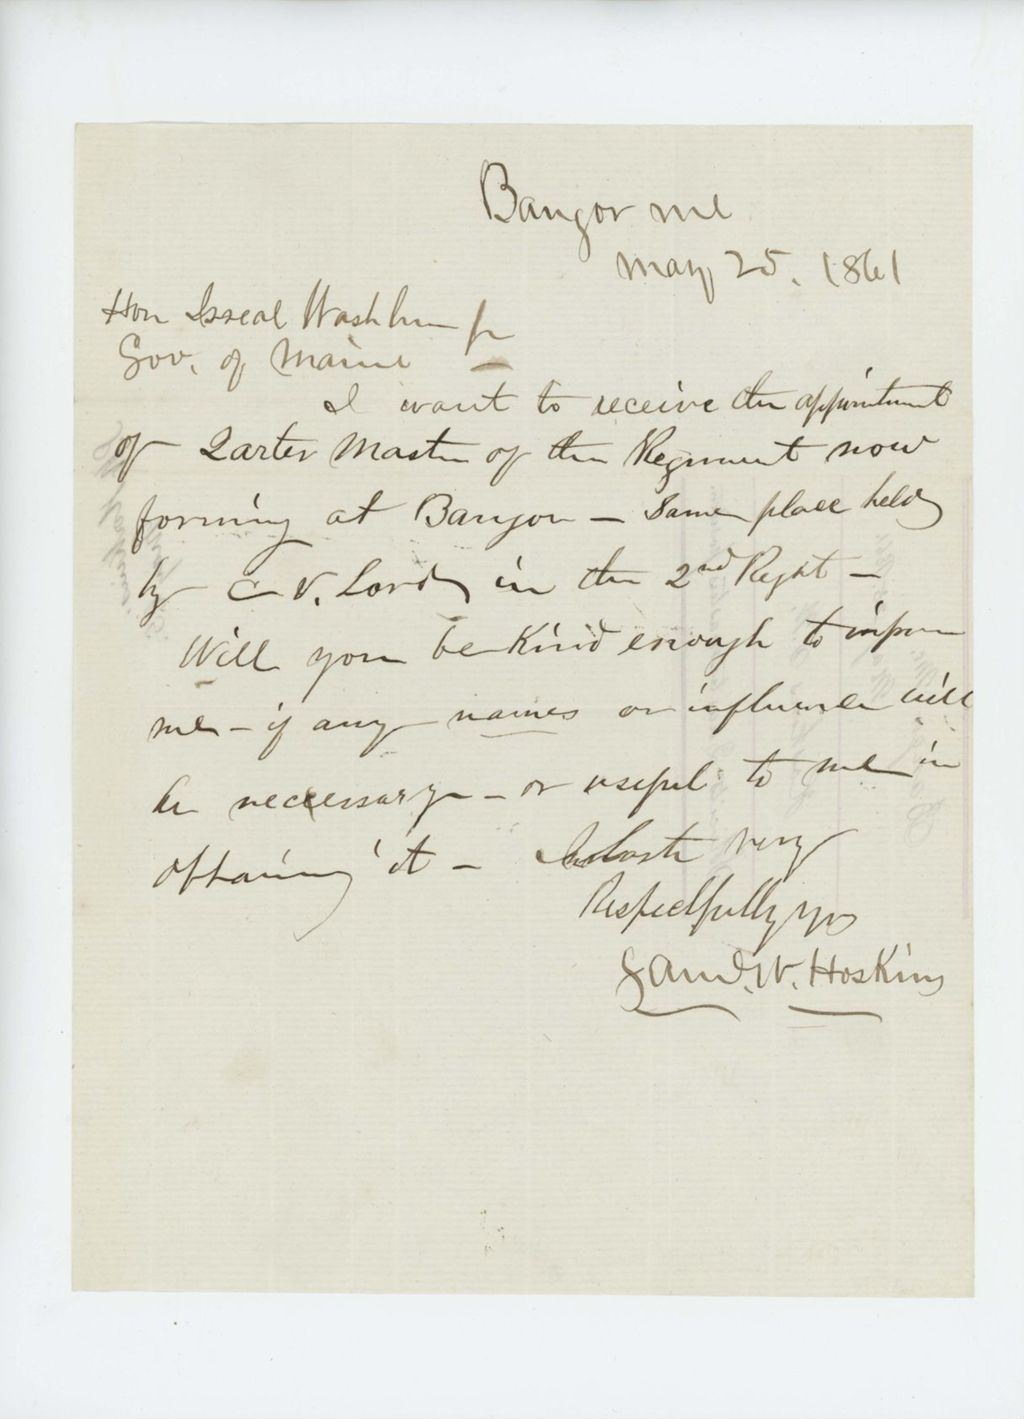 Bangor Me
May 25. 1861
Hon Isreal Washburn Jr
Gov. of Maine
I want to receive the appointment
of Quarter Master of the Regiment now
forming at Bangor – Same place held
by C V. Lord in the 2nd Regt –
Will you be Kind enough to inform
me – if any names or influence will
be neccessary – or useful to me in
obtaining it – In haste very
Respectfully yrs
Saml. W. Hoskins